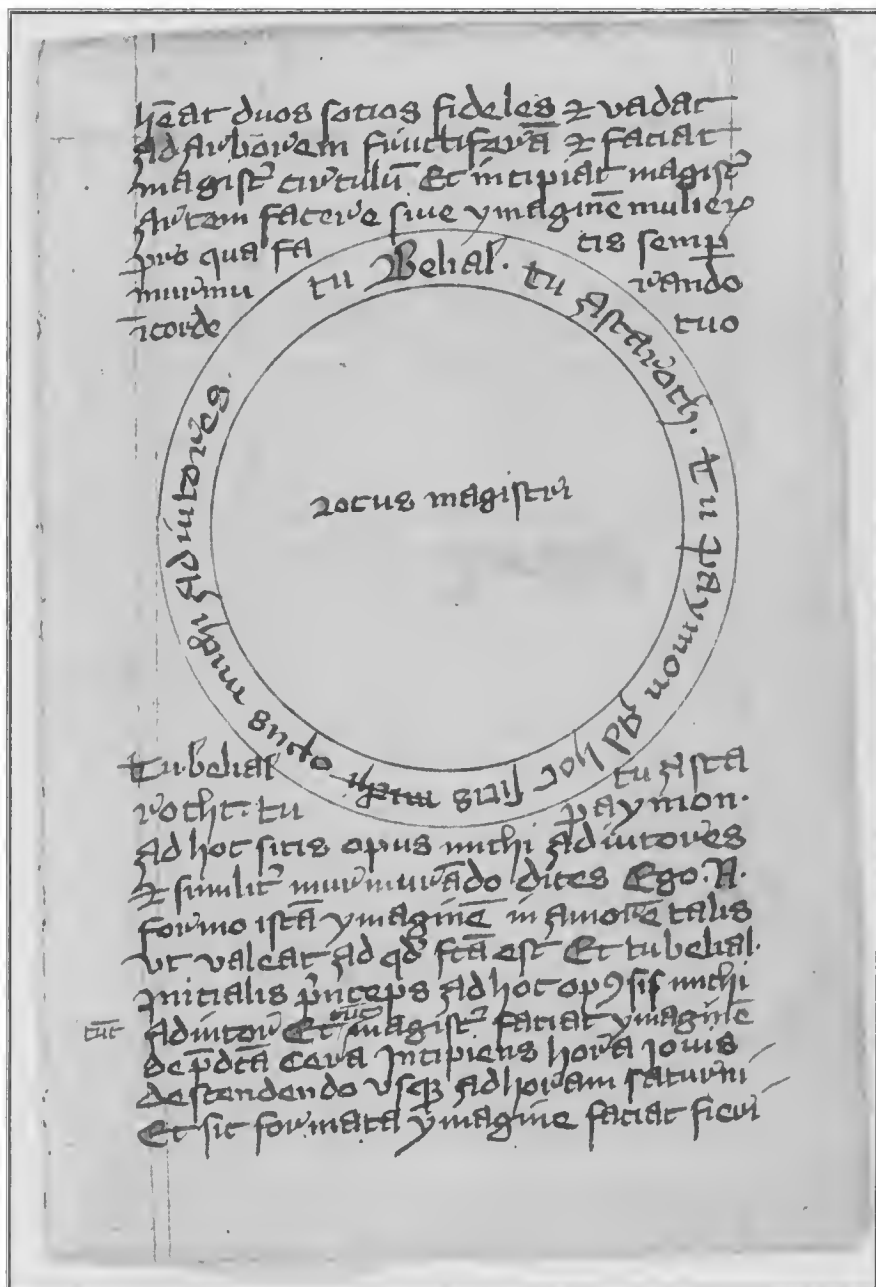 hēat duos sotios fideles ⁊ vadat
ad arborem fructiferā ⁊ faciat
magistˀ circulū Et incipiat magistˀ
artem facere siue ymaginē mulierꝝ
pro qua fa cis semꝑ
murmu rando
ī corde tuo
tu Belial. tu Astaroth. Tu paymon Ad hoc sitis michi opus michi Adiutores.
Locus magistri
Tu belial tu Asta
roth: tu paymon.
Ad hoc sitis opus michi Adiutores
⁊ similitˀ murmurādo dices Ego. N.
formo istā ymaginē in Amorē talis
vt valeat ad qd' fcā est Et tu belial.
Inicialis pͥnceps Ad hoc opꝰ sis michi
tūc
Adiutor Et tūc magistˀ faciat ymaginē
de p̄dcā cera Incipiens hora Jouis
descendendo vsqꝫ Ad horam saturni
Et sic formata ymagine faciat fieri